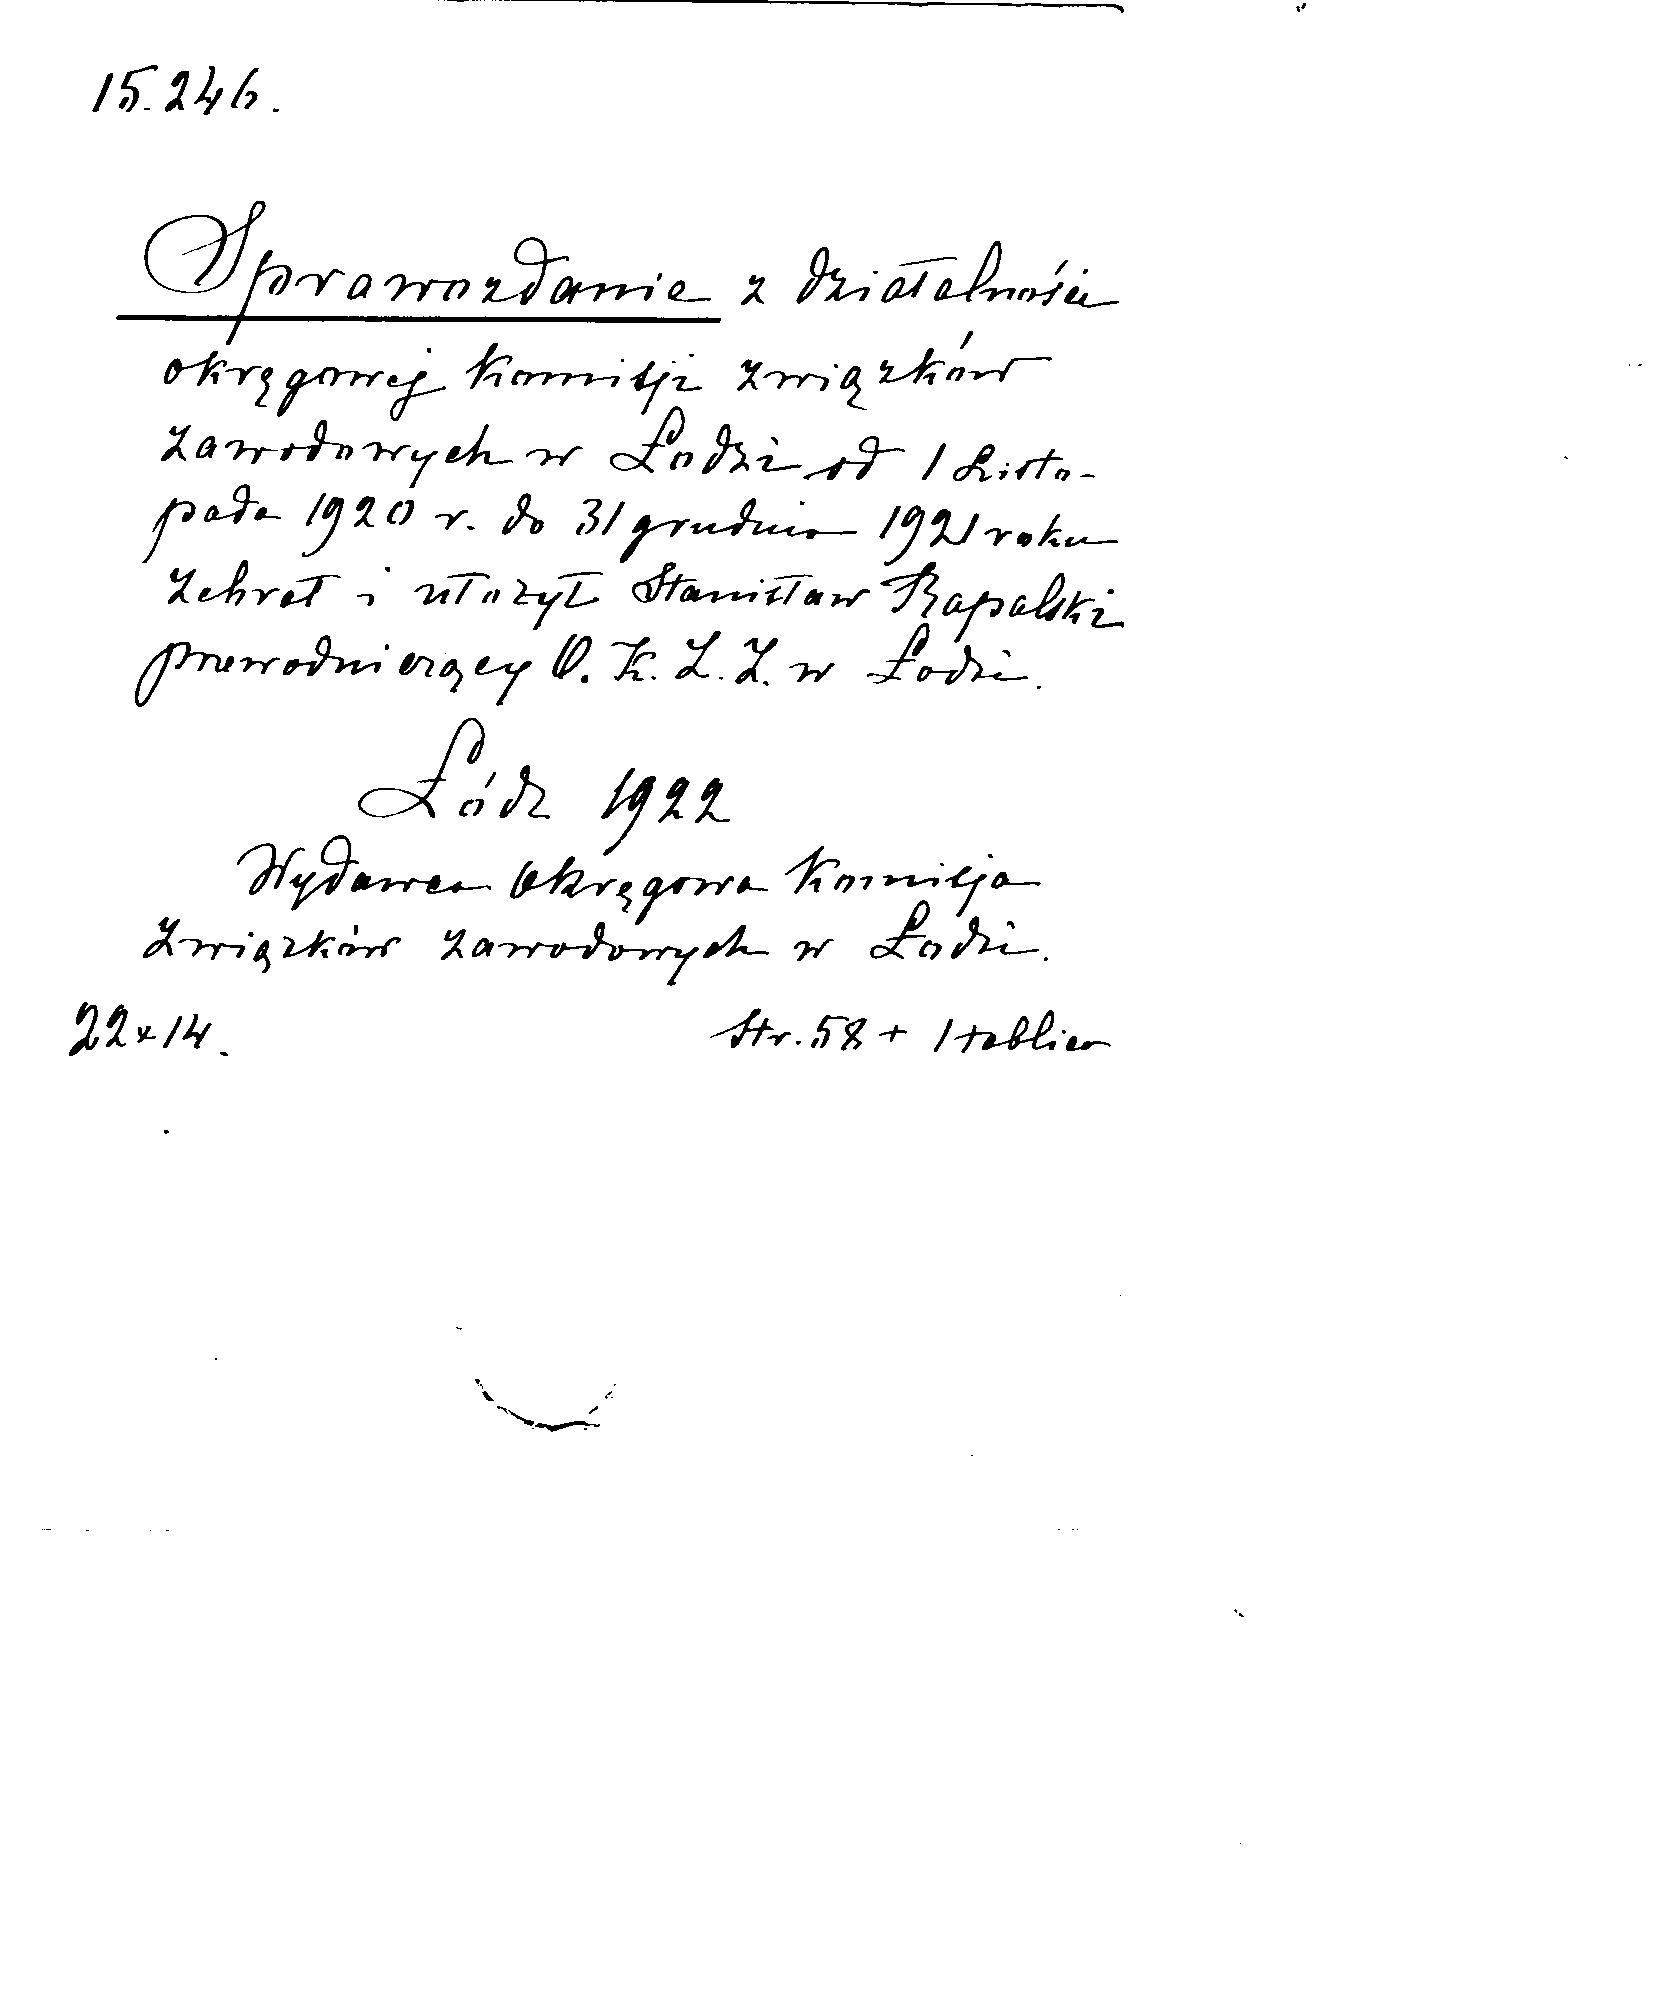 15.246.
Sprawozdanie z działalności
okręgowej Komisji związków
zawodowych w Łodzi od 1 Listo-
pada 1920 r. do 31 grudnia 1921 roku
zebrał i ułożył Stanisław Rapalski
przewodniczący O. K. Z. Z. w Łodzi.
Łódź 1922
Wydawca Okręgowa Komisja
Związków zawodowych w Łodzi.
22 x 14. Str. 58 + 1 tablica